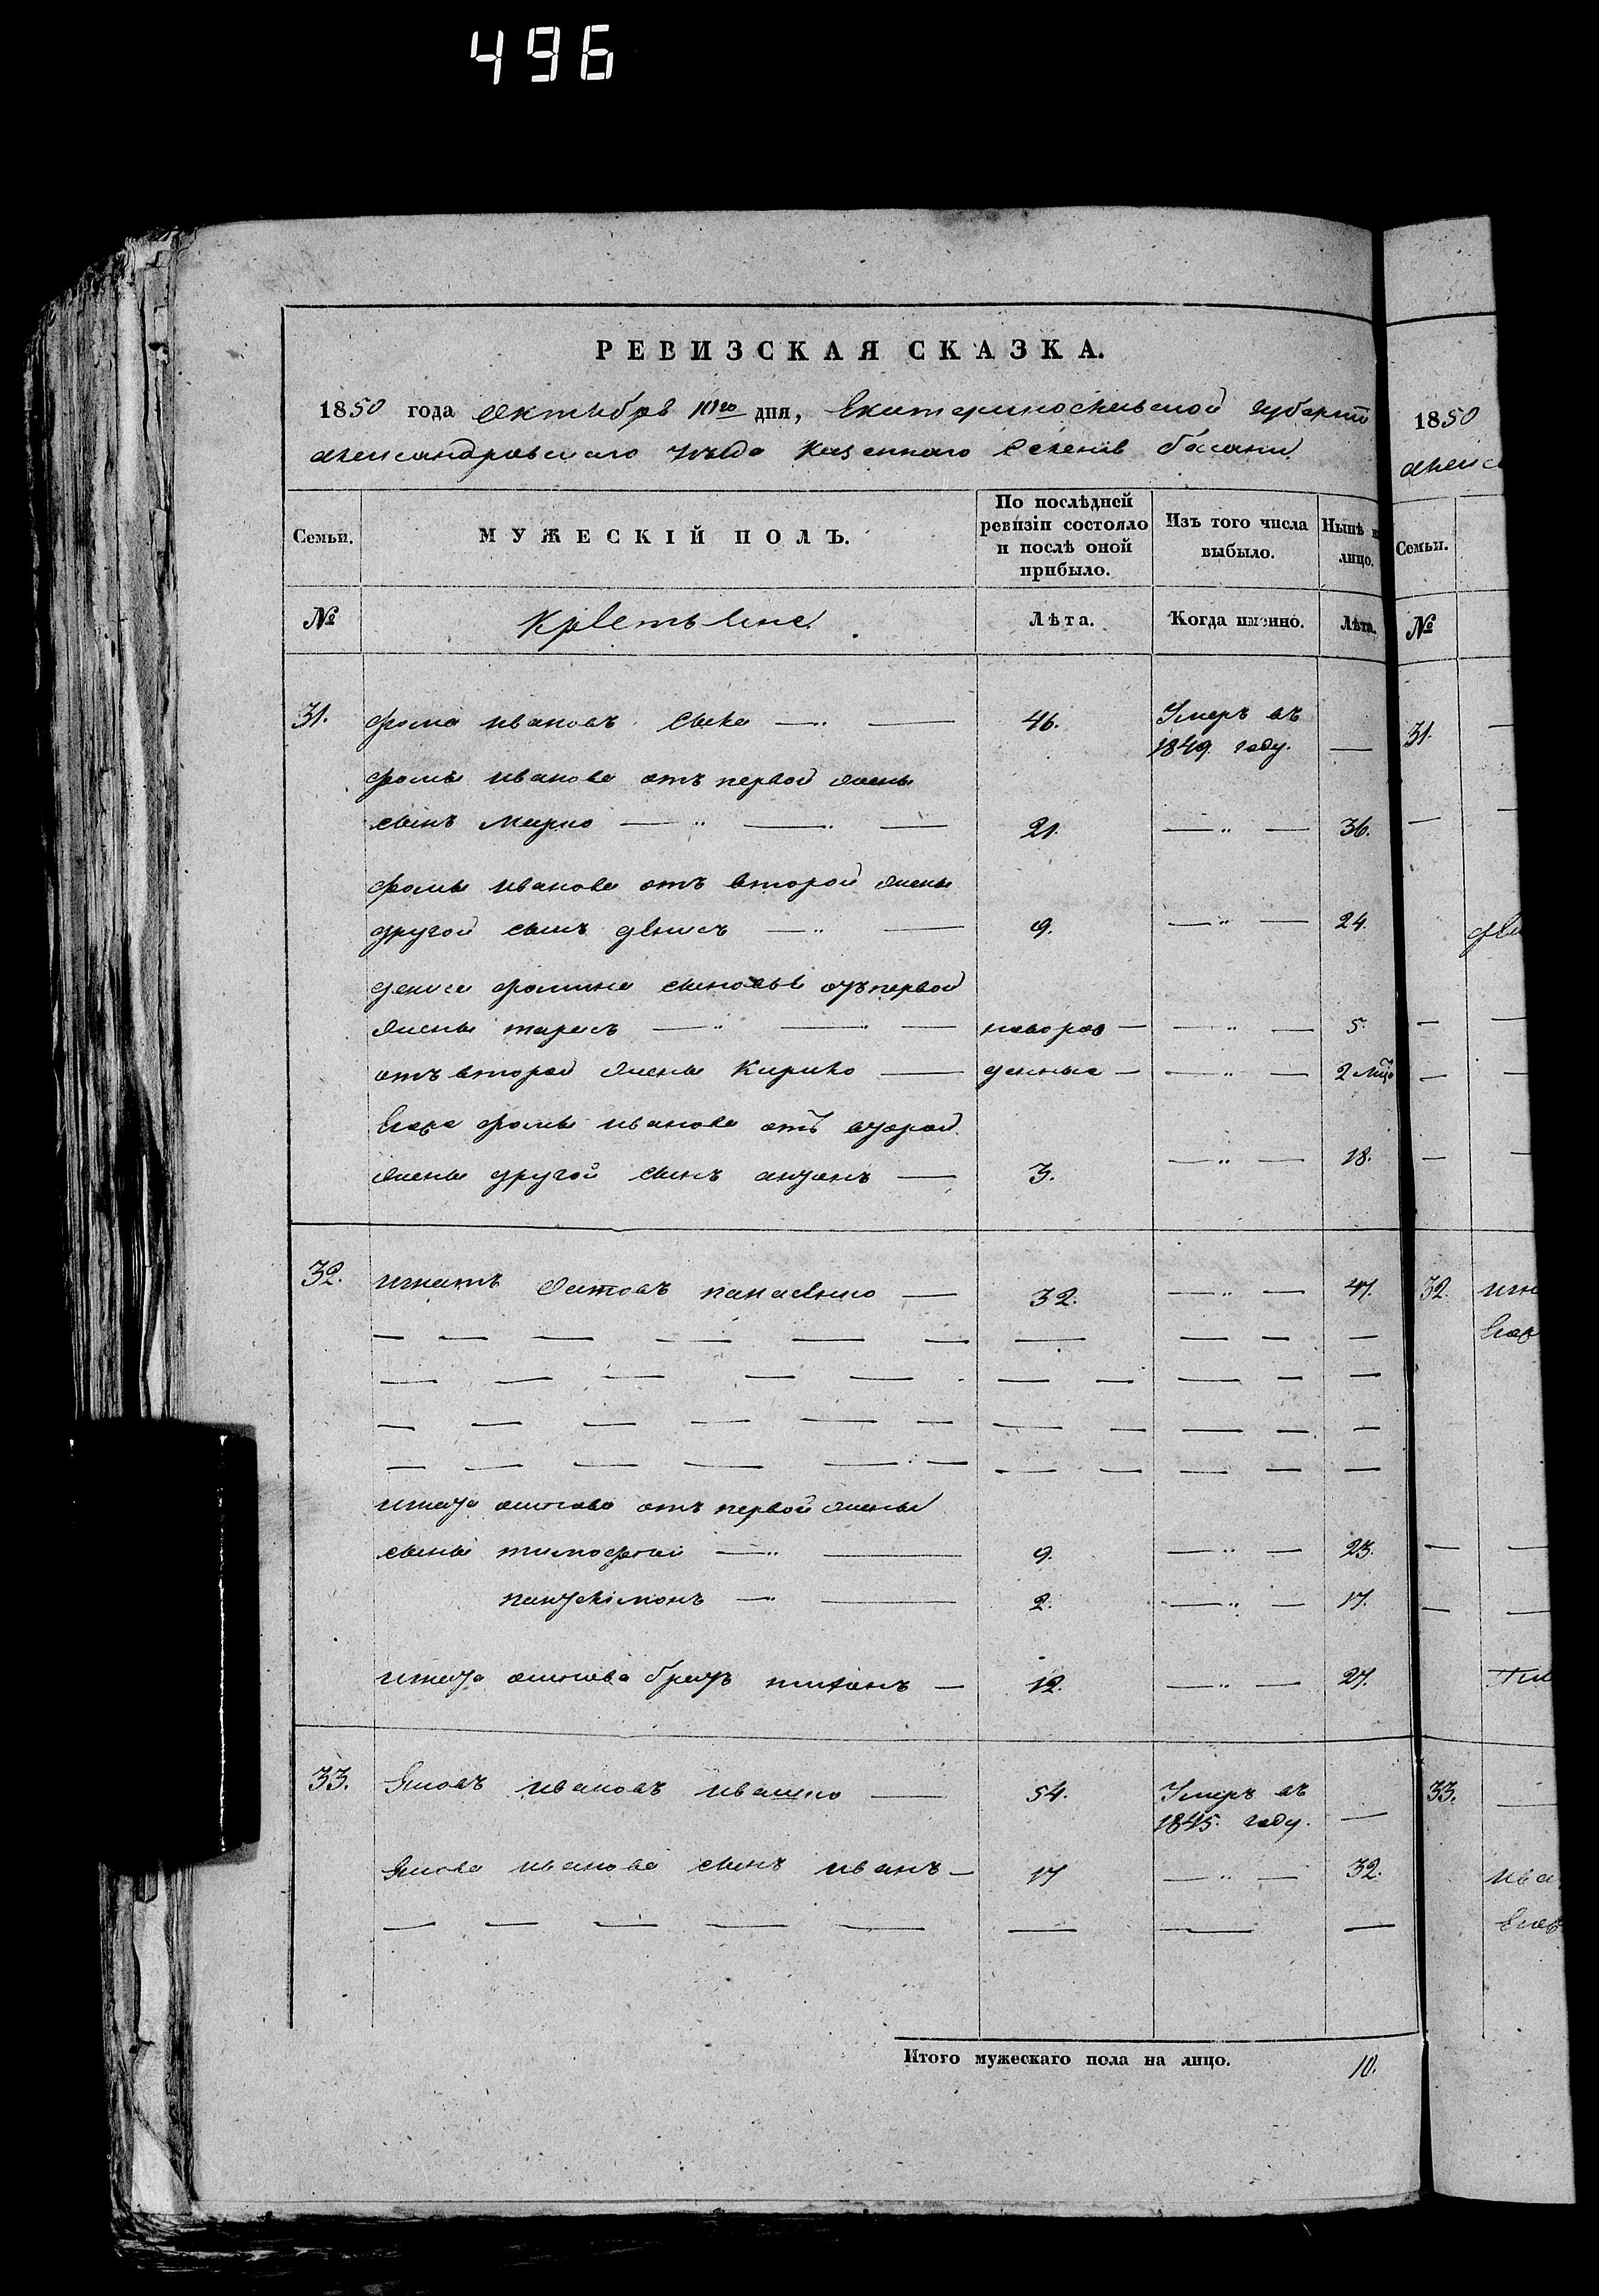 496
РЕВИЗСКАЯ СКАЗКА.
1850 года Октября дня, Екатеринославской губернiи
Александровскаго уѣзда Казеннаго Селенiя Басани
Семьи. МУЖЕСКІЙ ПОЛЪ. По послѣдней ревизіи состояло и послѣ оной прибыло. Изъ того числа выбыло. Нынѣ н лицо.
№ Крестьяне. Лѣта. Когда именно. Лѣта.
31. Фома Ивановъ 46. Умеръ въ
1849. году.
Фомы Иванова отъ первой жены
сынъ Марко 21. 36.
Фомы Иванова отъ второй жены
другой сынъ Денисъ 9. 24.
Дениса Фомина сыновья отъ первой
жены Тарасъ новорож 5.
отъ второй жены Кирико денные 2
Его Фомы Иванова отъ второй
жены другой сынъ Антонъ 3. 18.
32. Игнатъ Панасенко 32. 47.
Игната отъ первой жены
сыны Тимофей 9. 23.
Пантелiмонъ 2. 17.
Игната братъ Тихонъ 12. 27.
33. Яковъ Ивановъ Ивашко 54. Умеръ въ
1845. году.
Якова Иванова сынъ Иванъ 17 32.
Итого мужескаго пола на лицо. 10.
1850
Алекс
Семьи.
№
31.
32. Игн
Его
33.
Ива
Его